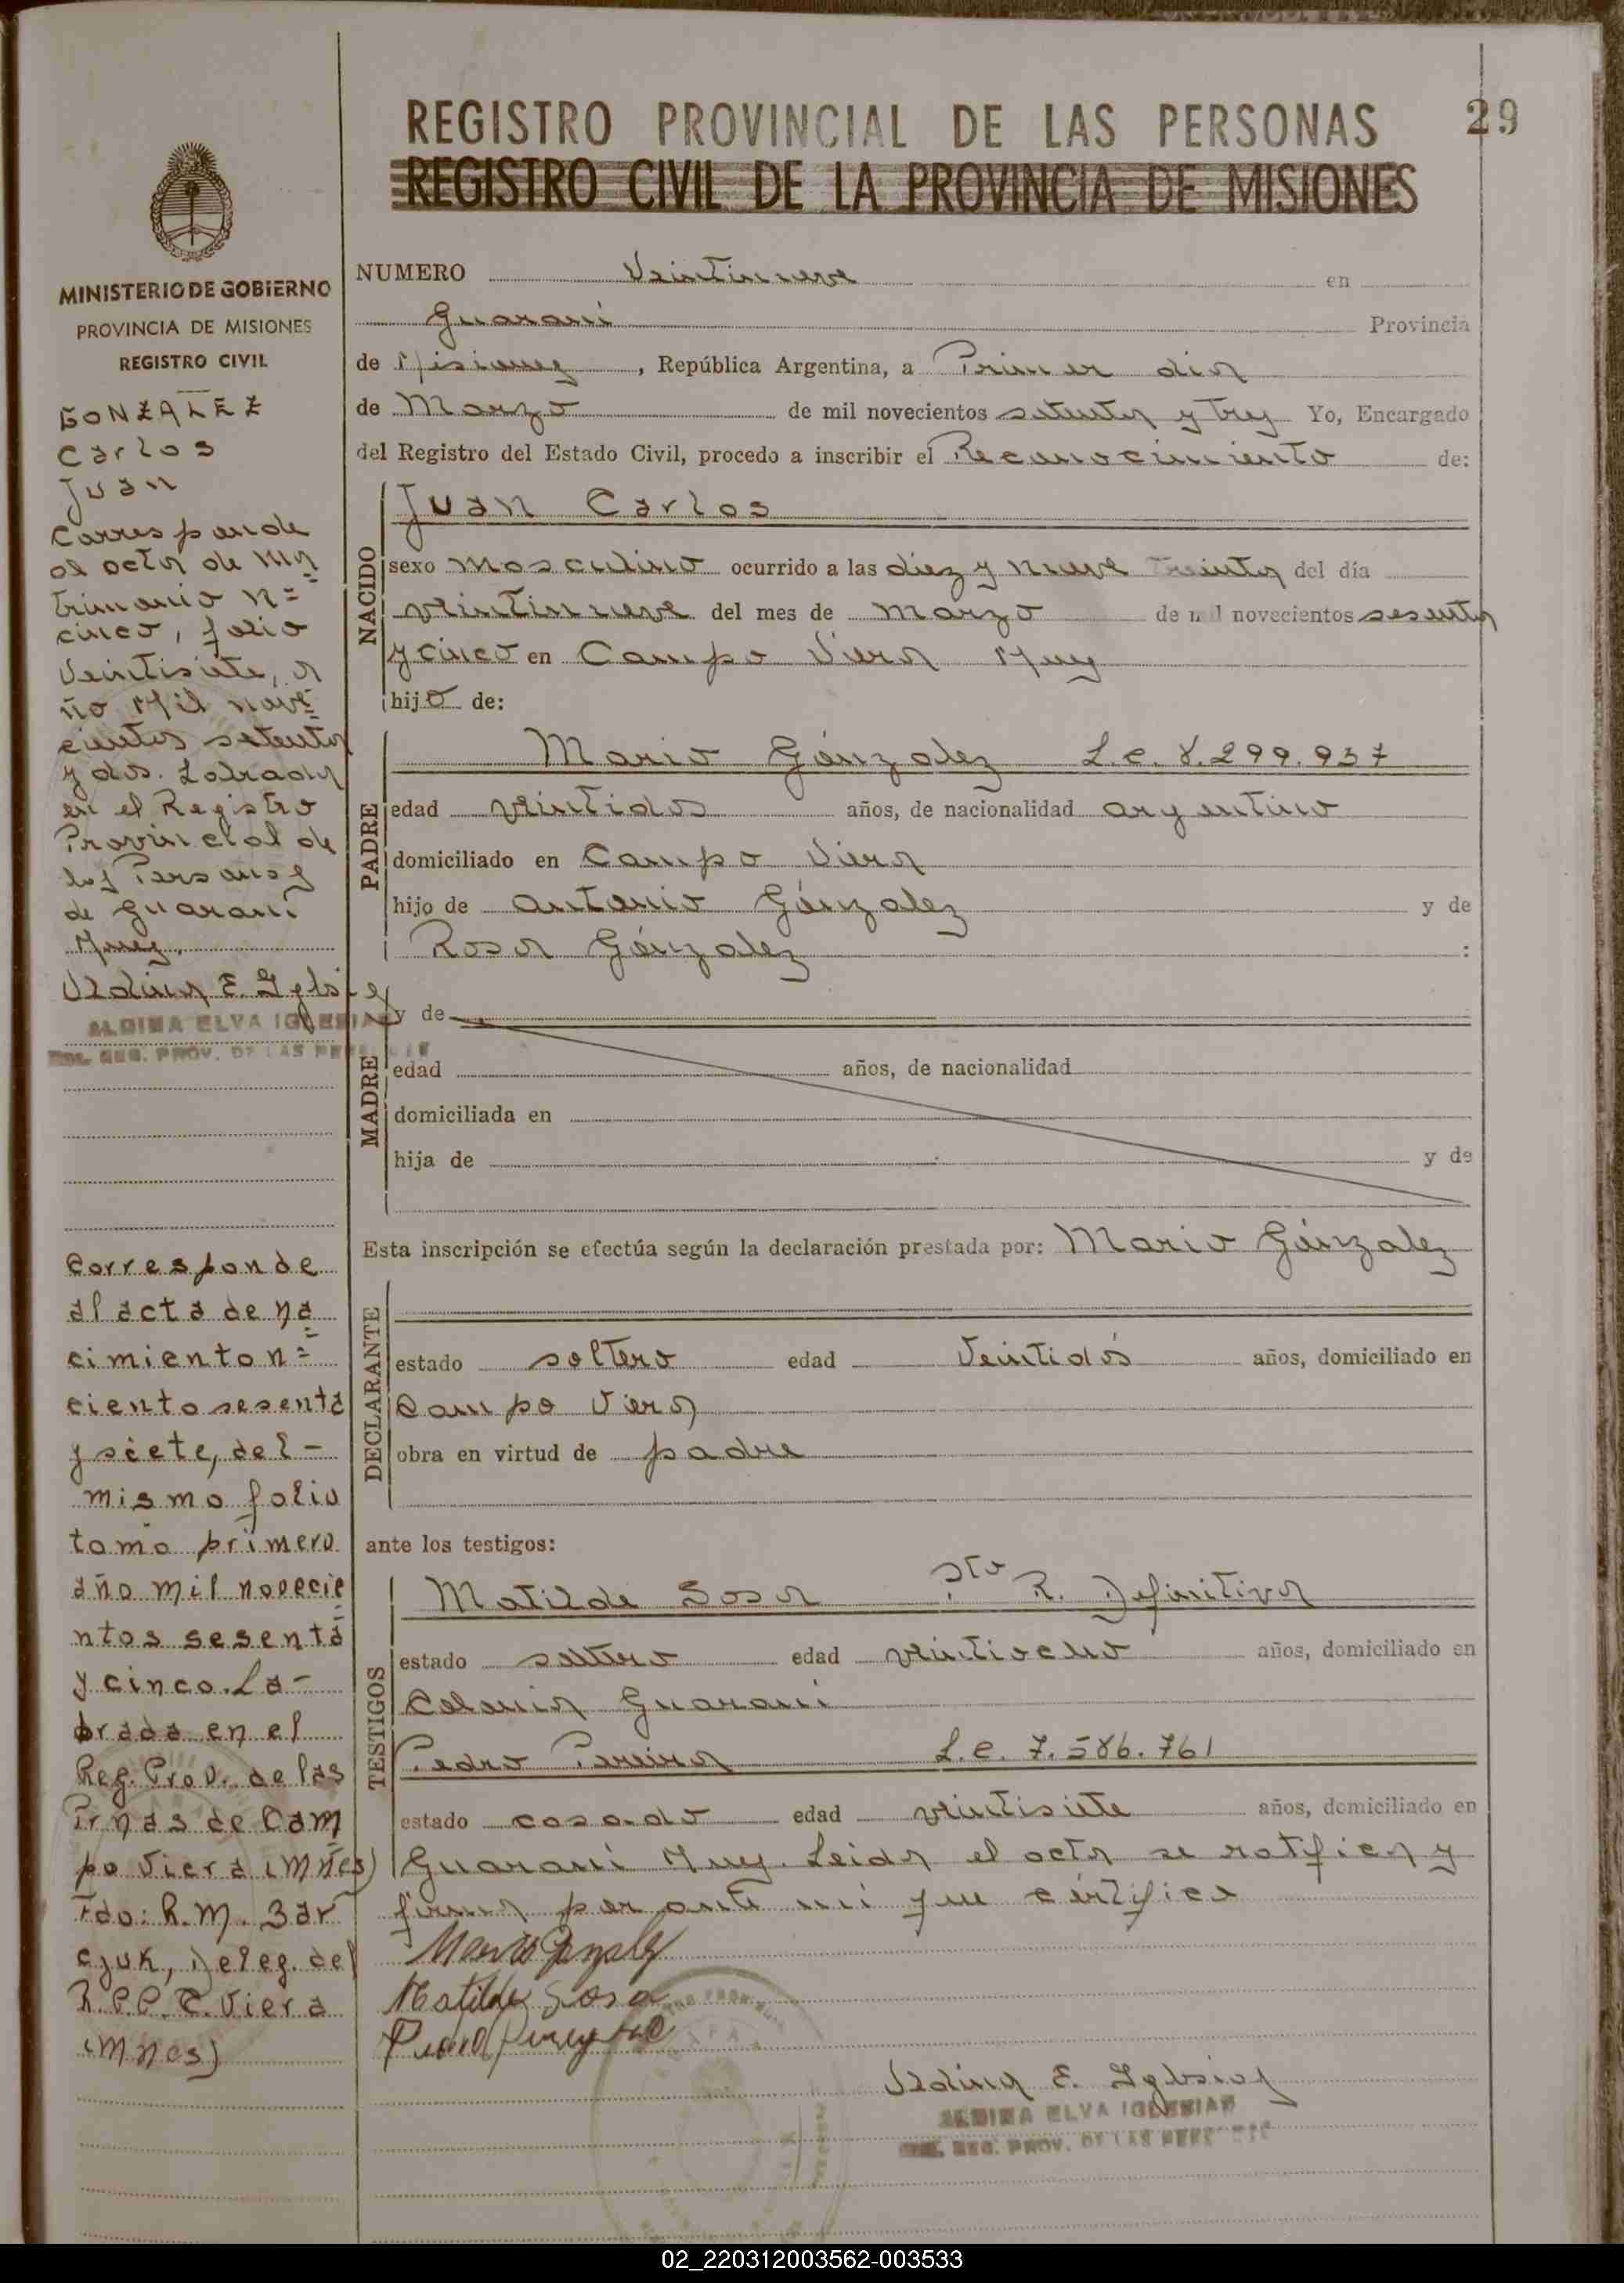 29
REGISTRO PROVINCIAL DE LAS PERSONAS
REGISTRO CIVIL DE LA PROVINCIA DE MISIONES
MINISTERIO DE GOBIERNO
PROVINCIA DE MISIONES
REGISTRO CIVIL
GONZALEZ
Carlos
Juan
Corresponde
al acta de Ma
trimonio n=
cinco, folio
Veintisiete, a
ño Mil nove
cientos setenta
y dos. Labrada
en el Registro
Provincial de
las Personas
de Guaraní
Mnes.
Aldina E. Iglesias
ALDINA ELVA IGLESIAS
DEL. REG. PROV. DE LAS PERSONAS
Corresponde
al acta de na
cimiento n=
ciento sesenta
y siete, del -
mismo folio
tomo primero
año mil novecie
ntos sesenta
y cinco. La-
brada en el
Reg. Prov. de las
Prnas de Cam
po Viera (Mnes)
Fdo: R.M. Bar
czuk, Deleg. del
R.P.P. C. Viera
(Mnes)
NUMERO Veintinueve en
Guaraní Provincia
de Misiones, República Argentina, a Primer dia
de Marzo de mil novecientos setenta y tres Yo, Encargado
del Registro del Estado Civil, procedo a inscribir el Reconocimiento de:
NACIDO
Juan Carlos
sexo Masculino ocurrido a las diez y nueve Treinta del día
veintinueve del mes de Marzo de mil novecientos sesenta
y cinco en Campo Viera Mnes
hijo de:
PADRE
Mario Gónzalez L.E. 8.299.937
edad veintidos años, de nacionalidad argentino
domiciliado en Campo Viera
hijo de Antonio Gónzalez y de
Rosa Gónzalez :
MADRE
y de
edad años, de nacionalidad
domiciliada en
hija de y de
Esta inscripción se efectúa según la declaración prestada por: Mario Gónzalez
DECLARANTE
estado soltero edad Veintidós años, domiciliado en
Campo Viera
obra en virtud de padre
ante los testigos:
TESTIGOS
Matilde Sosa R. Definitiva
estado soltera edad veintiocho años, domiciliado en
Colonia Guaraní
Pedro Pereira L.E. 7.586.761
estado casado edad veintisiete años, domiciliado en
Guaraní Mnes. Leida el acta se ratifica y
firma por ante mí que certifico
Mario Gonzalez
Matilde Sosa
Aldina E. Iglesias
ALDINA ELVA IGLESIAS
DEL. REG. PROV. DE LAS PERSONAS
02_220312003562-003533